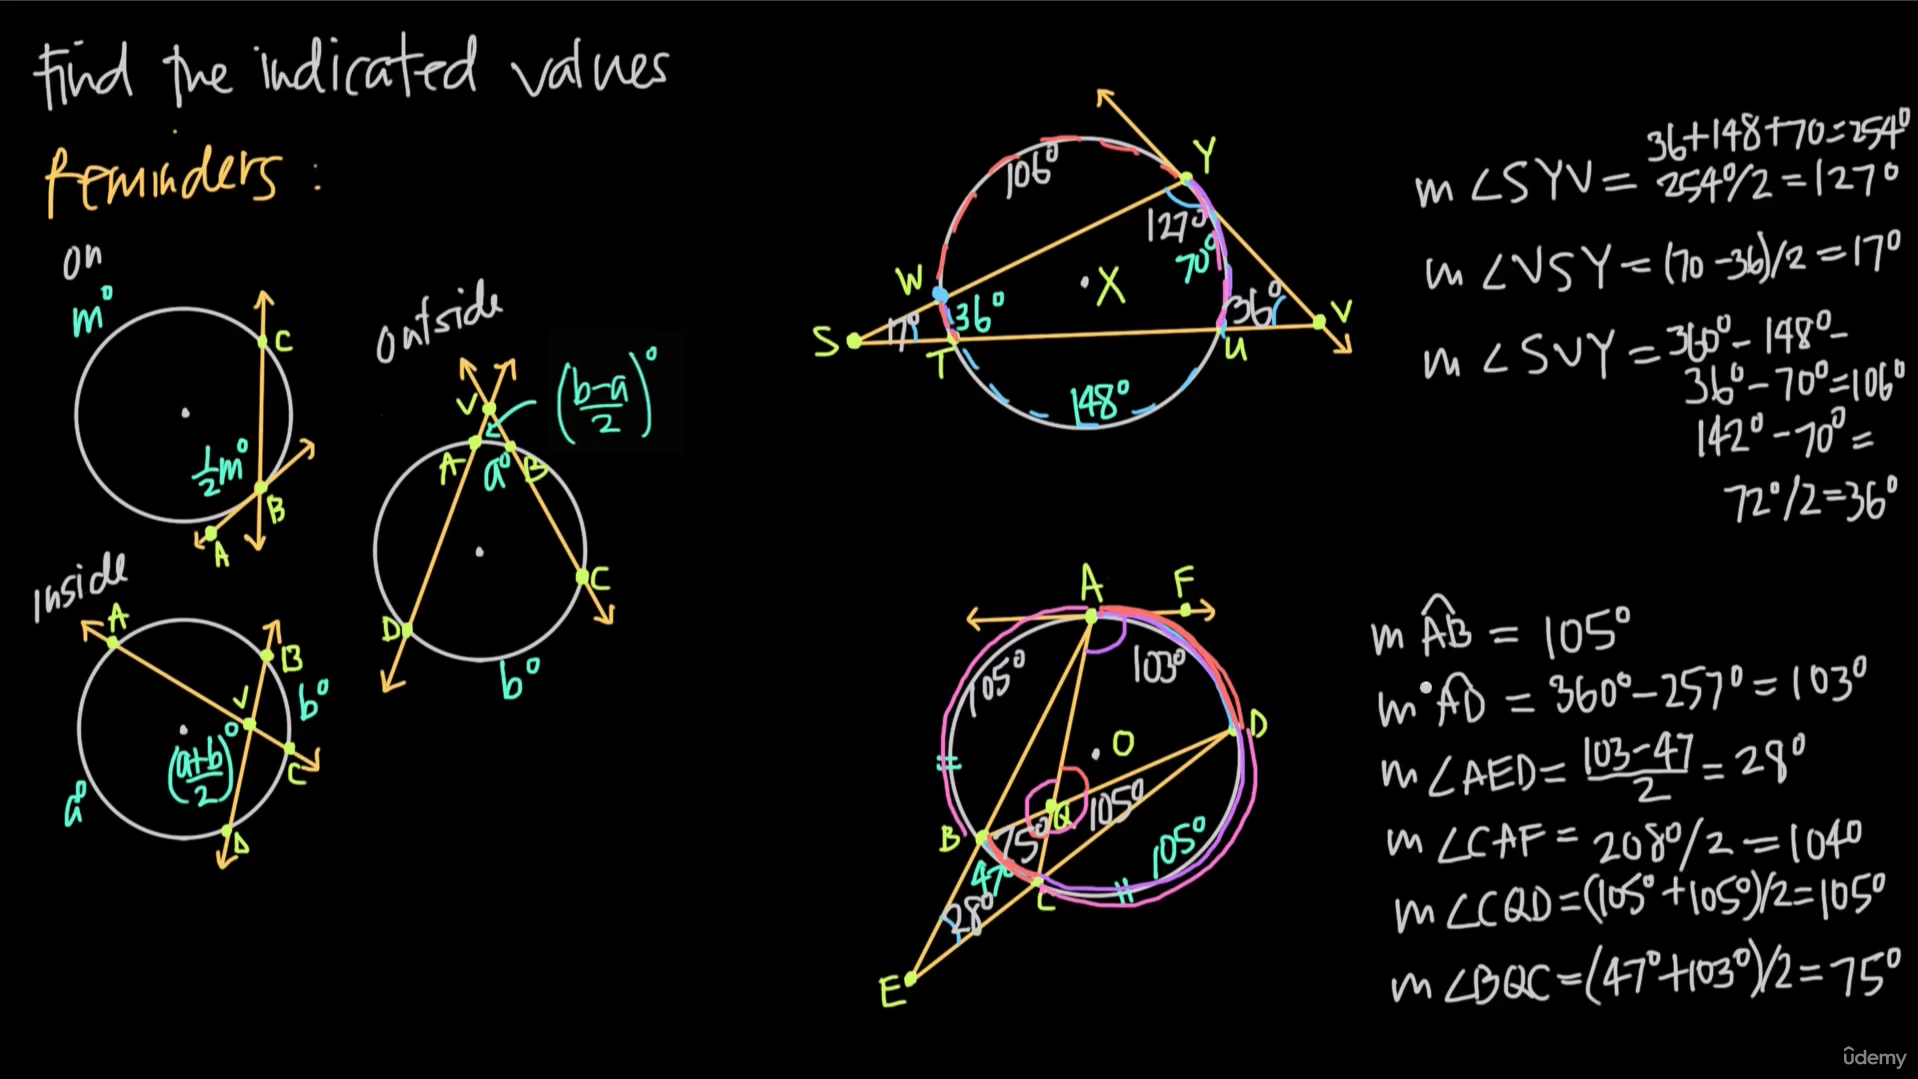 Find the indicated values
Reminders :
on
m°
C
½m°
B
A
outside
V
(b-a/2)°
A
a°
B
C
D
b°
inside
A
B
V
b°
(a+b/2)°
C
a°
D
106°
Y
127°
70°
W
36°
X
36°
V
S
17°
T
U
148°
m∠SYV = 36+148+70=254°
254°/2 = 127°
m∠VSY = (70-36)/2 = 17°
m∠SVY = 360° - 148° -
36° - 70° = 106°
142° - 70° =
72°/2 = 36°
A
F
105°
103°
D
O
Q
105°
B
75°
105°
47°
C
28°
E
m AB = 105°
m AD = 360° - 257° = 103°
m∠AED = 103-47/2 = 28°
m∠CAF = 208°/2 = 104°
m∠CQD = (105° + 105°)/2 = 105°
m∠BQC = (47° + 103°)/2 = 75°
ûdemy